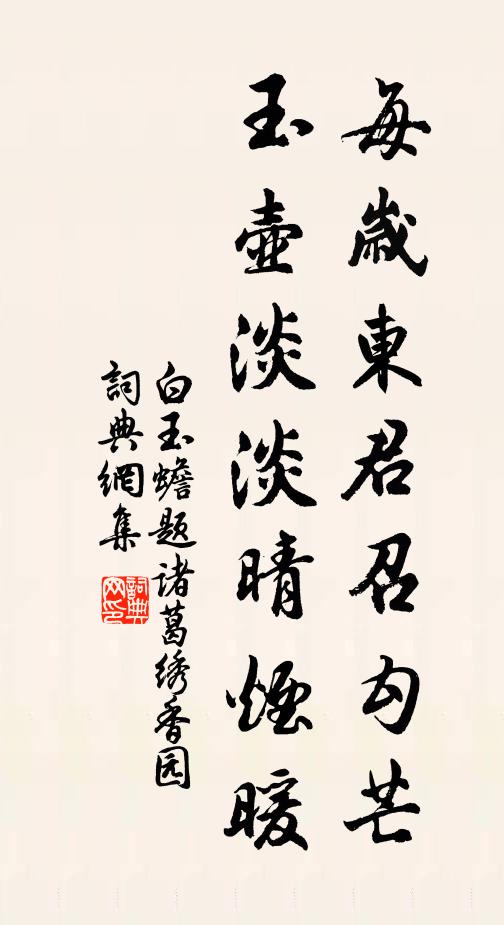 每歲東君召勾芒
玉壺淡淡晴煙暖
白玉蟾题诸葛绣香园
詞典網集
詞典網印